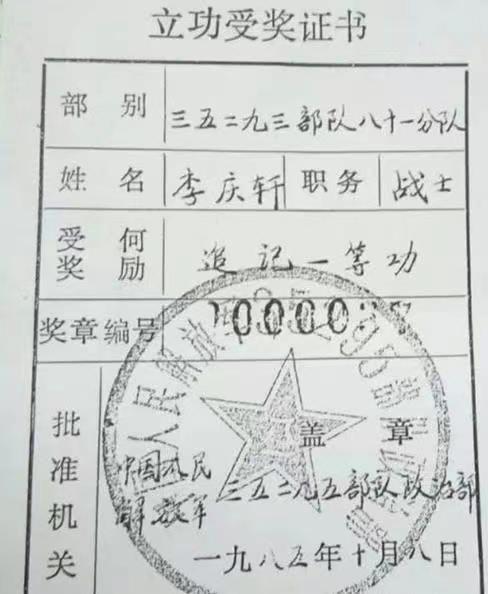 立功受奖证书
部别 三五二九三部队八十一分队
姓名 李庆轩 职务 战士
受何奖励 追记一等功
奖章编号
批准机关 中国人民解放军 三五二九五部队政治部
盖章
一九八五年十月八日